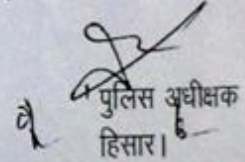 पुलिस अधीक्षक
हिसार।